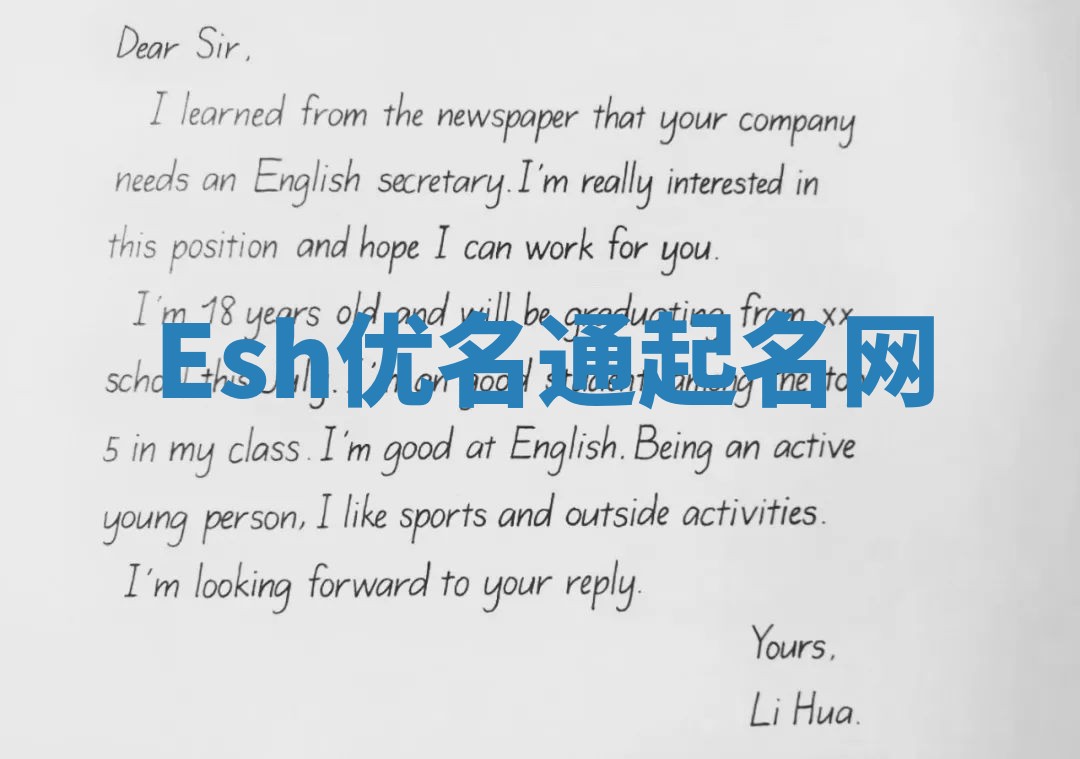 Dear Sir,
I learned from the newspaper that your company
needs an English secretary. I'm really interested in
this position and hope I can work for you.
I'm 18 years old and will be graduating from xx
Esh优名通起名网
school this July. I'm an good student among the top
5 in my class. I'm good at English. Being an active
young person, I like sports and outside activities.
I'm looking forward to your reply.
Yours,
Li Hua.